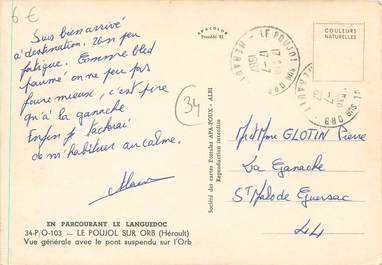 6€
Suis bien arrivé
à destination. Un peu
fatigué. Comme bled
paumé on ne peu pas
faire mieux, c'est pire
qu'à la ganache
Enfin je tacherai
de m'habituer au calme.
34
EN PARCOURANT LE LANGUEDOC
34-P/O-103 — LE POUJOL SUR ORB (Hérault)
Vue générale avec le pont suspendu sur l'Orb
APACOLOR
Procédé 81
Société des cartes Postales APA-POUX - ALBI
Reproduction interdite
LE POUJOL SUR ORB
HERAULT
17-7
1965
COULEURS
NATURELLES
Mr Mme GLOTIN Pierre
La Ganache
St Malo de Guersac
44